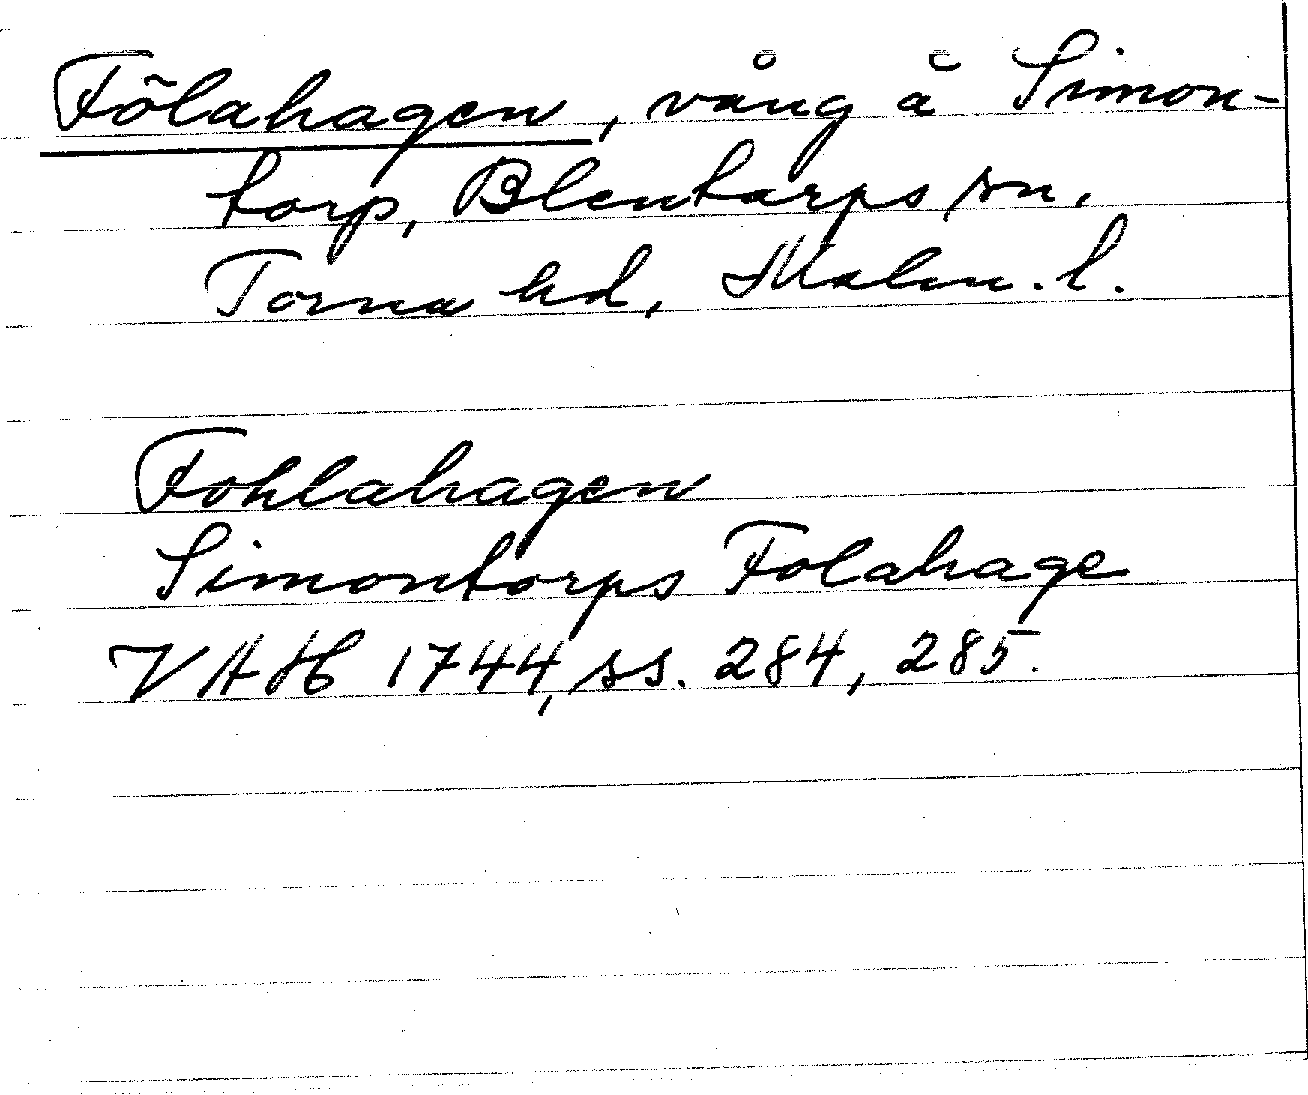 Fölahagen, vång å Simon-
torp, Blentarps sn.
Torna hd, Malm. l.
Fohlahagen
Simontorps Folahage
VAH 1744, ss. 284, 285.